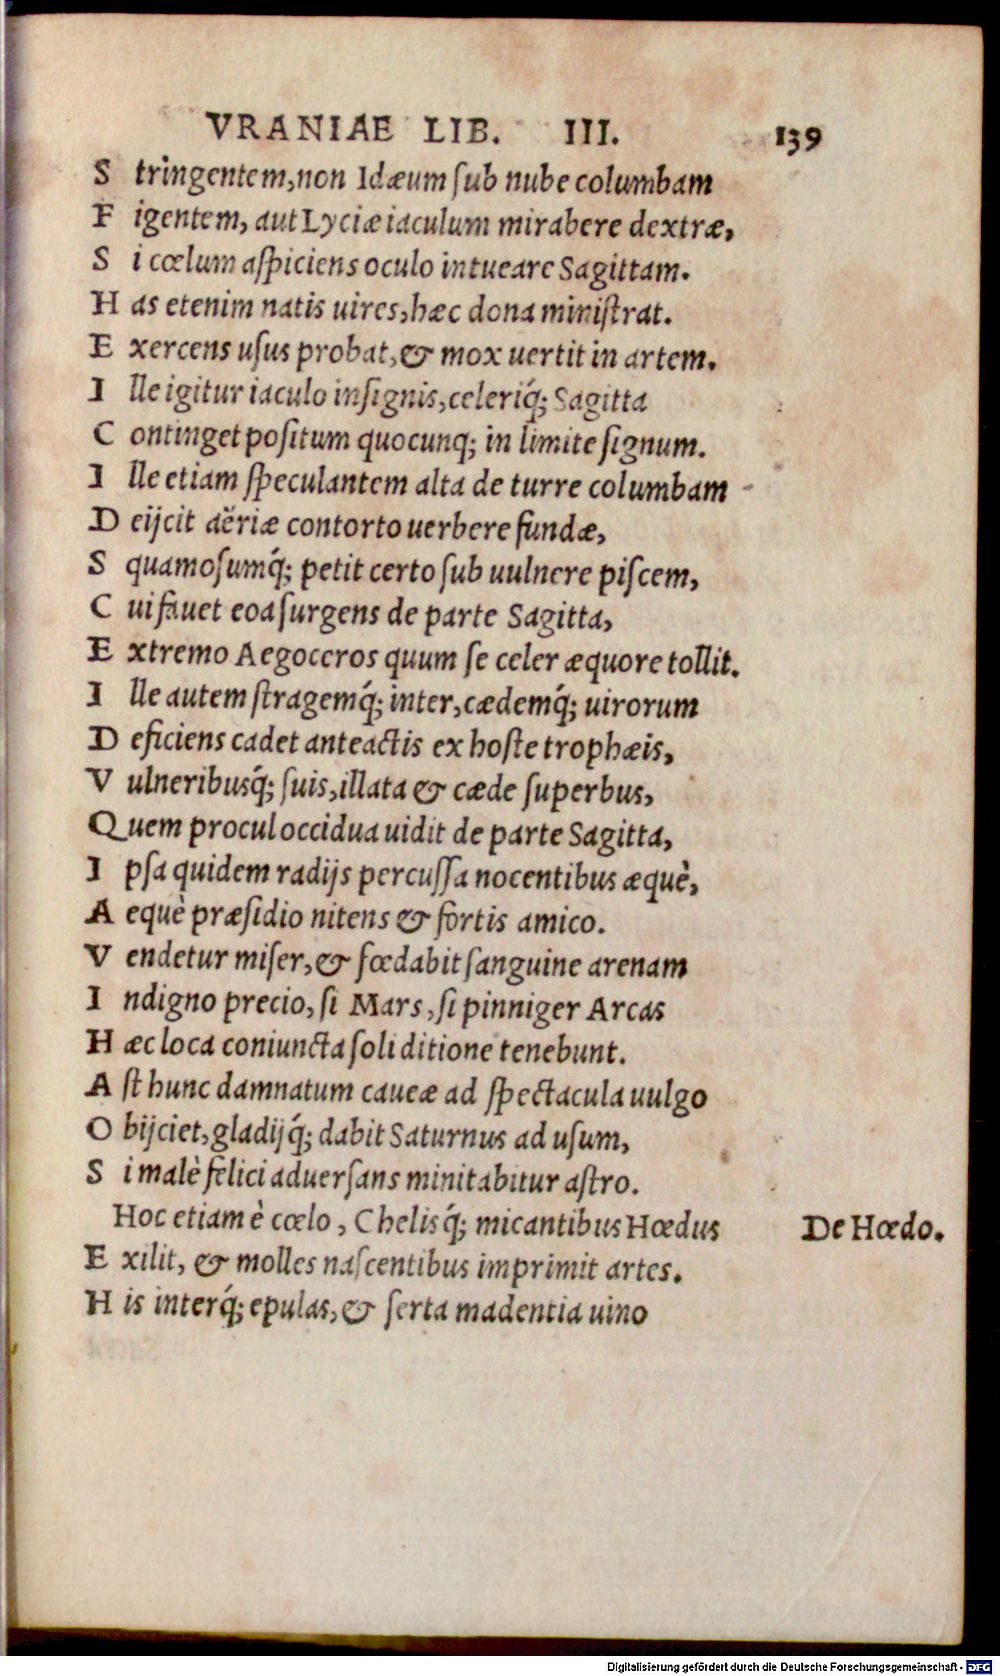 VRANIAE LIB. III. 139
S tringentem, non Idæum ſub nube columbam
F igentem, aut Lyciæ iaculum mirabere dextræ,
S i cœlum aſpiciens oculo intueare Sagittam.
H as etenim natis uires, hæc dona miniſtrat.
E xercens uſus probat, & mox uertit in artem.
I lle igitur iaculo inſignis, celeriq́; Sagitta
C ontinget poſitum quocunq; in limite ſignum.
I lle etiam ſpeculantem alta de turre columbam
D eijcit aëriæ contorto uerbere fundæ,
S quamoſumq́; petit certo ſub uulnere piſcem,
C ui fauet eoa ſurgens de parte Sagitta,
E xtremo Aegoceros quum ſe celer æquore tollit.
I lle autem ſtragemq́; inter, cædemq́; uirorum
D eficiens cadet anteactis ex hoſte trophæis,
V ulneribusq́; ſuis, illata & cæde ſuperbus,
Quem procul occidua uidit de parte Sagitta,
I pſa quidem radijs percuſſa nocentibus æquè,
A equè præſidio nitens & fortis amico.
V endetur miſer, & fœdabit ſanguine arenam
I ndigno precio, ſi Mars, ſi pinniger Arcas
H æc loca coniuncta ſoli ditione tenebunt.
A ſt hunc damnatum caueæ ad ſpectacula uulgo
O bijciet, gladijq́; dabit Saturnus ad uſum,
S i malè felici aduerſans minitabitur aſtro.
Hoc etiam è cœlo, Chelisq́; micantibus Hœdus De Hœdo.
E xilit, & molles naſcentibus imprimit artes.
H is interq́; epulas, & ſerta madentia uino
Digitalisierung gefördert durch die Deutsche Forschungsgemeinschaft - DFG